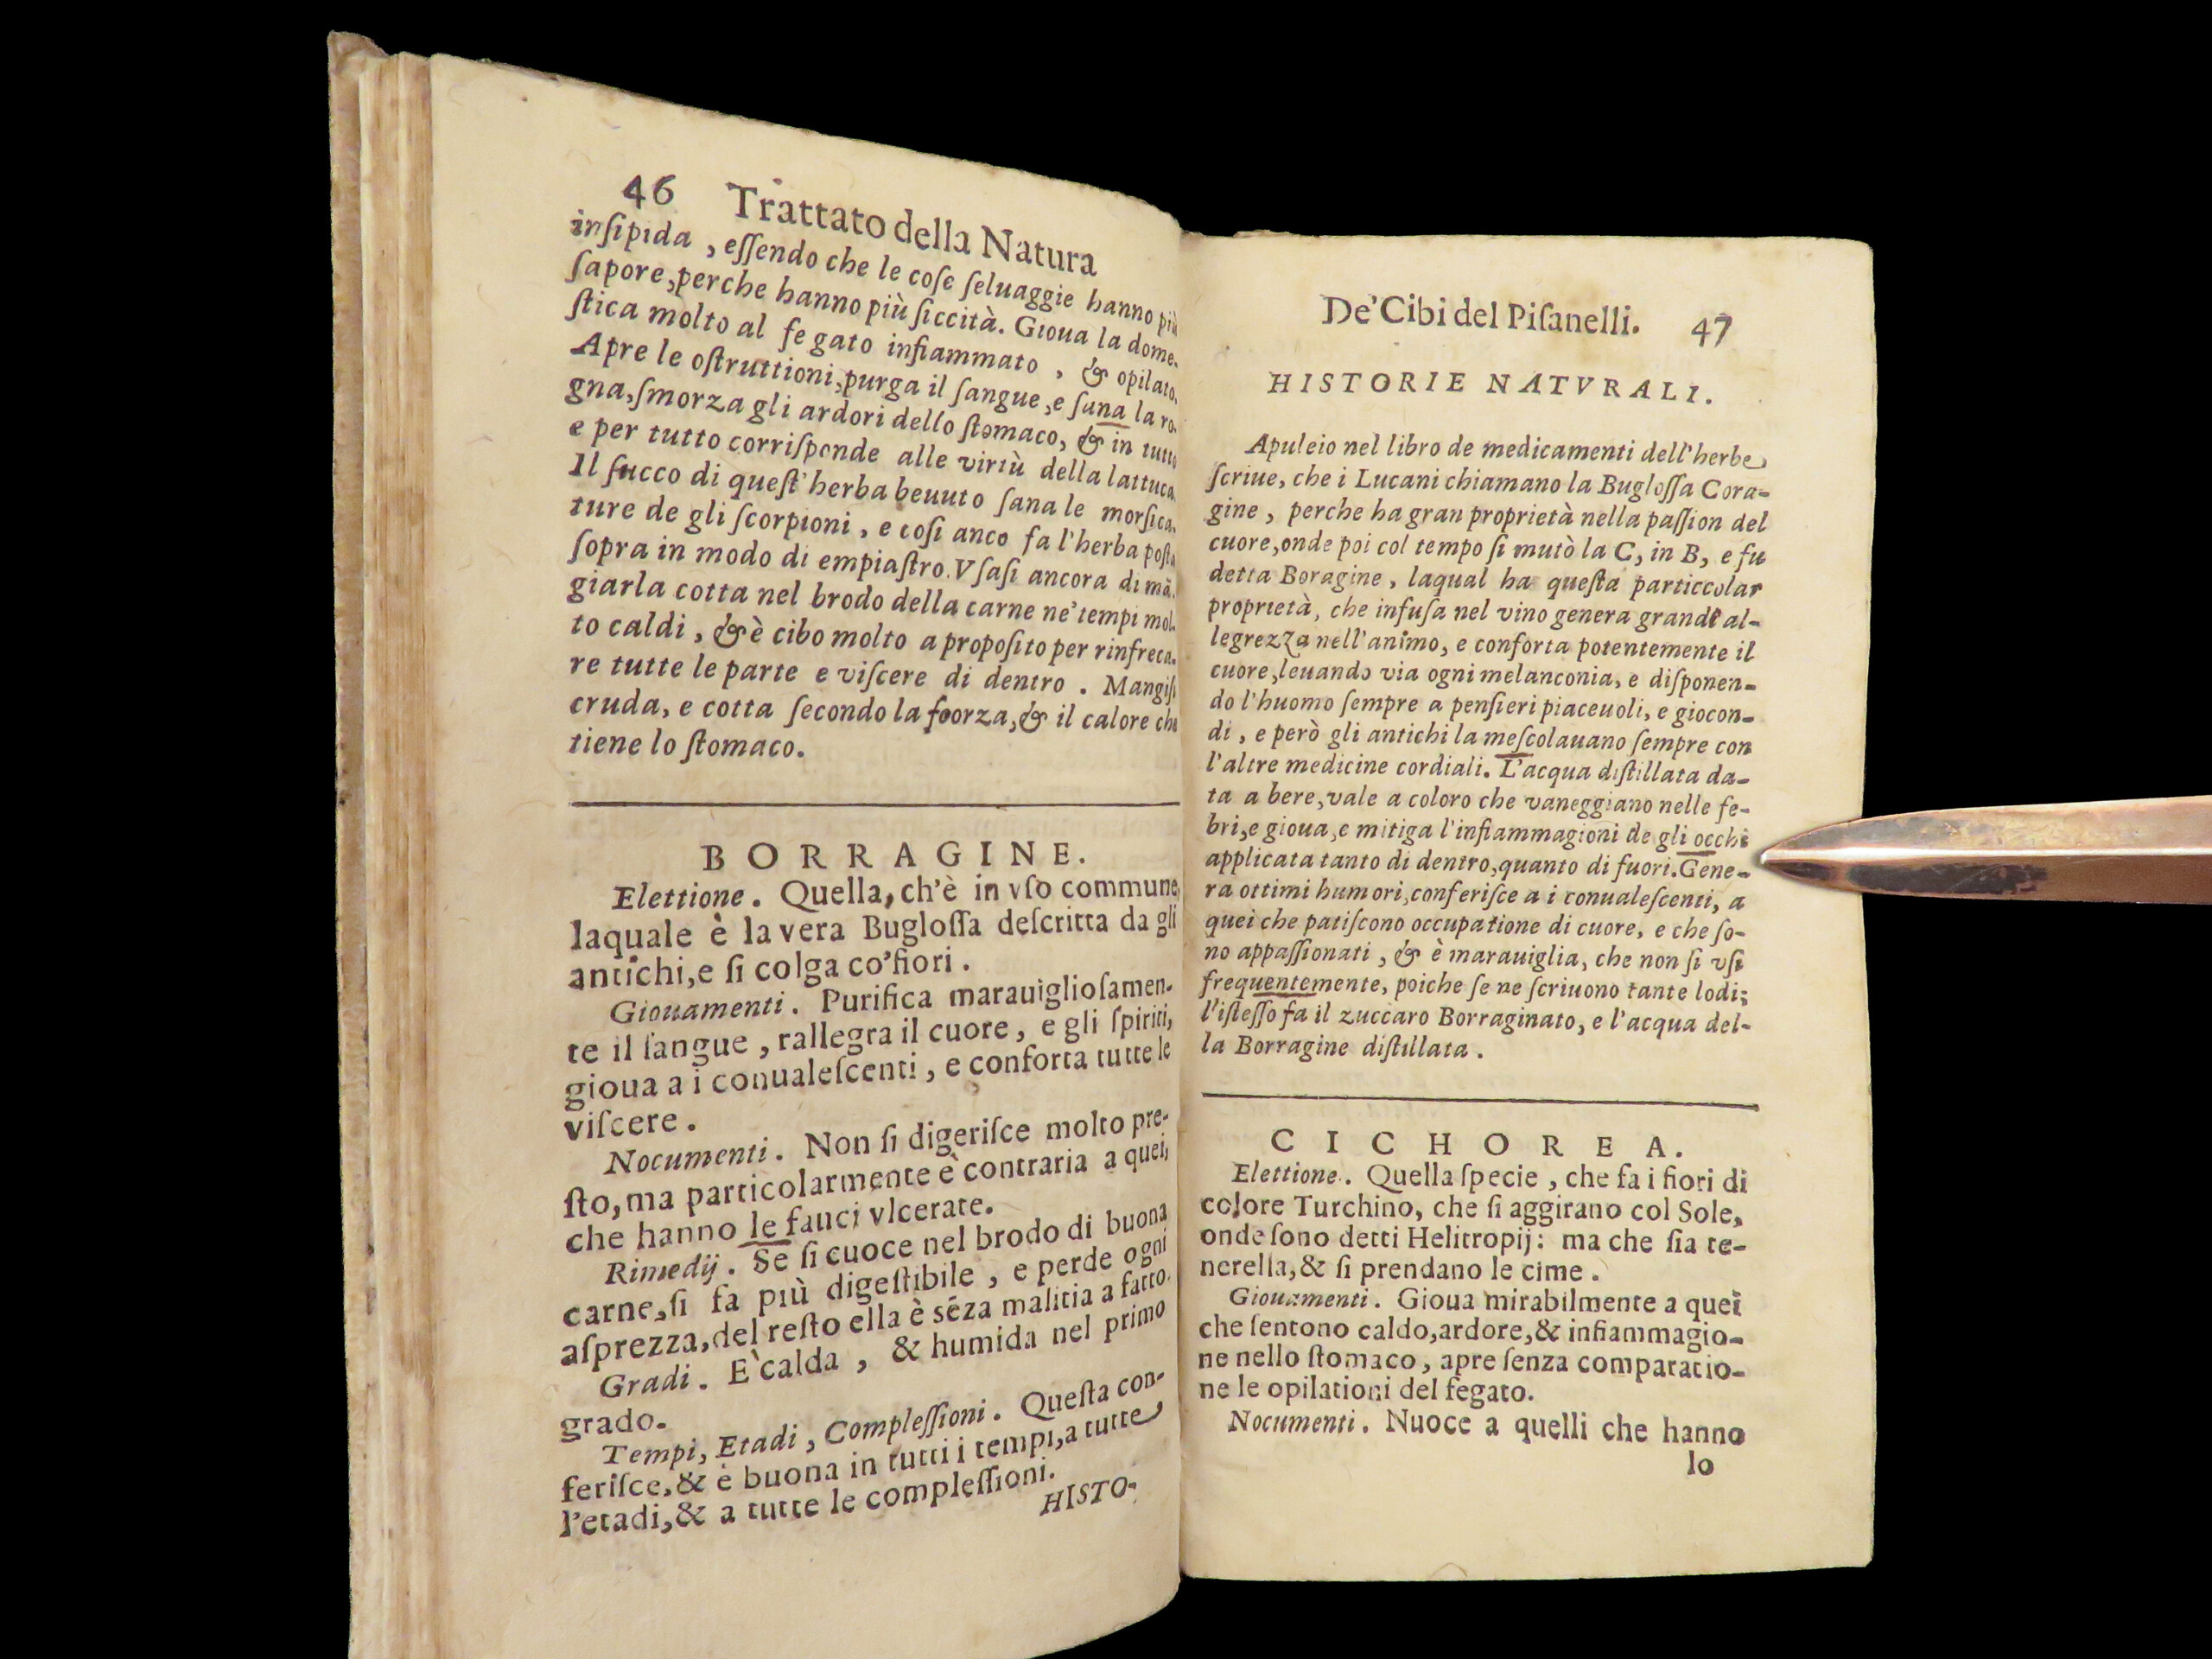 46 Trattato della Natura
inſipida, eſſendo che le coſe ſeluaggie hanno più
ſapore, perche hanno più ſiccità. Gioua la dome-
ſtica molto al fegato infiammato, & opilato.
Apre le oſtruttioni, purga il ſangue, e ſana la ro-
gna, ſmorza gli ardori dello ſtomaco, & in tutto
e per tutto corriſponde alle virtù della lattuca.
Il ſucco di queſt'herba beuuto ſana le morſica-
ture de gli ſcorpioni, e coſi anco fa l'herba poſta
ſopra in modo di empiaſtro. Vſaſi ancora di mã-
giarla cotta nel brodo della carne ne' tempi mol-
to caldi, & è cibo molto a propoſito per rinfreca-
re tutte le parte e viſcere di dentro. Mangiſi
cruda, e cotta ſecondo la foorza, & il calore che
tiene lo ſtomaco.
BORRAGINE.
Elettione. Quella, ch'è in vſo commune,
laquale è la vera Bugloſſa deſcritta da gli
antichi, e ſi colga co'fiori.
Giouamenti. Purifica marauiglioſamen-
te il ſangue, rallegra il cuore, e gli ſpiriti,
gioua a i conualeſcenti, e conforta tutte le
viſcere.
Nocumenti. Non ſi digeriſce molto pre-
ſto, ma particolarmente è contraria a quei,
che hanno le fauci vlcerate.
Rimedij. Se ſi cuoce nel brodo di buona
carne, ſi fa più digeſtibile, e perde ogni
aſprezza, del reſto ella è séza malitia a fatto.
Gradi. E' calda, & humida nel primo
grado.
Tempi, Etadi, Compleſſioni. Queſta con-
feriſce, & è buona in tutti i tempi, a tutte
l'etadi, & a tutte le compleſſioni.
HISTO-
De' Cibi del Piſanelli. 47
HISTORIE NATVRALI.
Apuleio nel libro de medicamenti dell'herbe
ſcriue, che i Lucani chiamano la Bugloſſa Cora-
gine, perche ha gran proprietà nella paſſion del
cuore, onde poi col tempo ſi mutò la C, in B, e fu
detta Boragine, laqual ha queſta particcolar
proprietà, che infuſa nel vino genera grande al-
legrezza nell'animo, e conforta potentemente il
cuore, leuando via ogni melanconia, e diſponen-
do l'huomo ſempre a penſieri piaceuoli, e giocon-
di, e però gli antichi la meſcolauano ſempre con
l'altre medicine cordiali. L'acqua diſtillata da-
ta a bere, vale a coloro che vaneggiano nelle fe-
bri, e gioua, e mitiga l'infiammagioni de gli occhi
applicata tanto di dentro, quanto di fuori. Gene-
ra ottimi humori, conferiſce a i conualeſcenti, a
quei che patiſcono occupatione di cuore, e che ſo-
no appaſſionati, & è marauiglia, che non ſi vſi
frequentemente, poiche ſe ne ſcriuono tante lodi;
l'iſteſſo fa il zuccaro Borraginato, e l'acqua del-
la Borragine diſtillata.
CICHOREA.
Elettione. Quella ſpecie, che fa i fiori di
colore Turchino, che ſi aggirano col Sole,
onde ſono detti Helitropij: ma che ſia te-
nerella, & ſi prendano le cime.
Giouamenti. Gioua mirabilmente a quei
che ſentono caldo, ardore, & infiammagio-
ne nello ſtomaco, apre ſenza comparatio-
ne le opilationi del fegato.
Nocumenti. Nuoce a quelli che hanno
lo